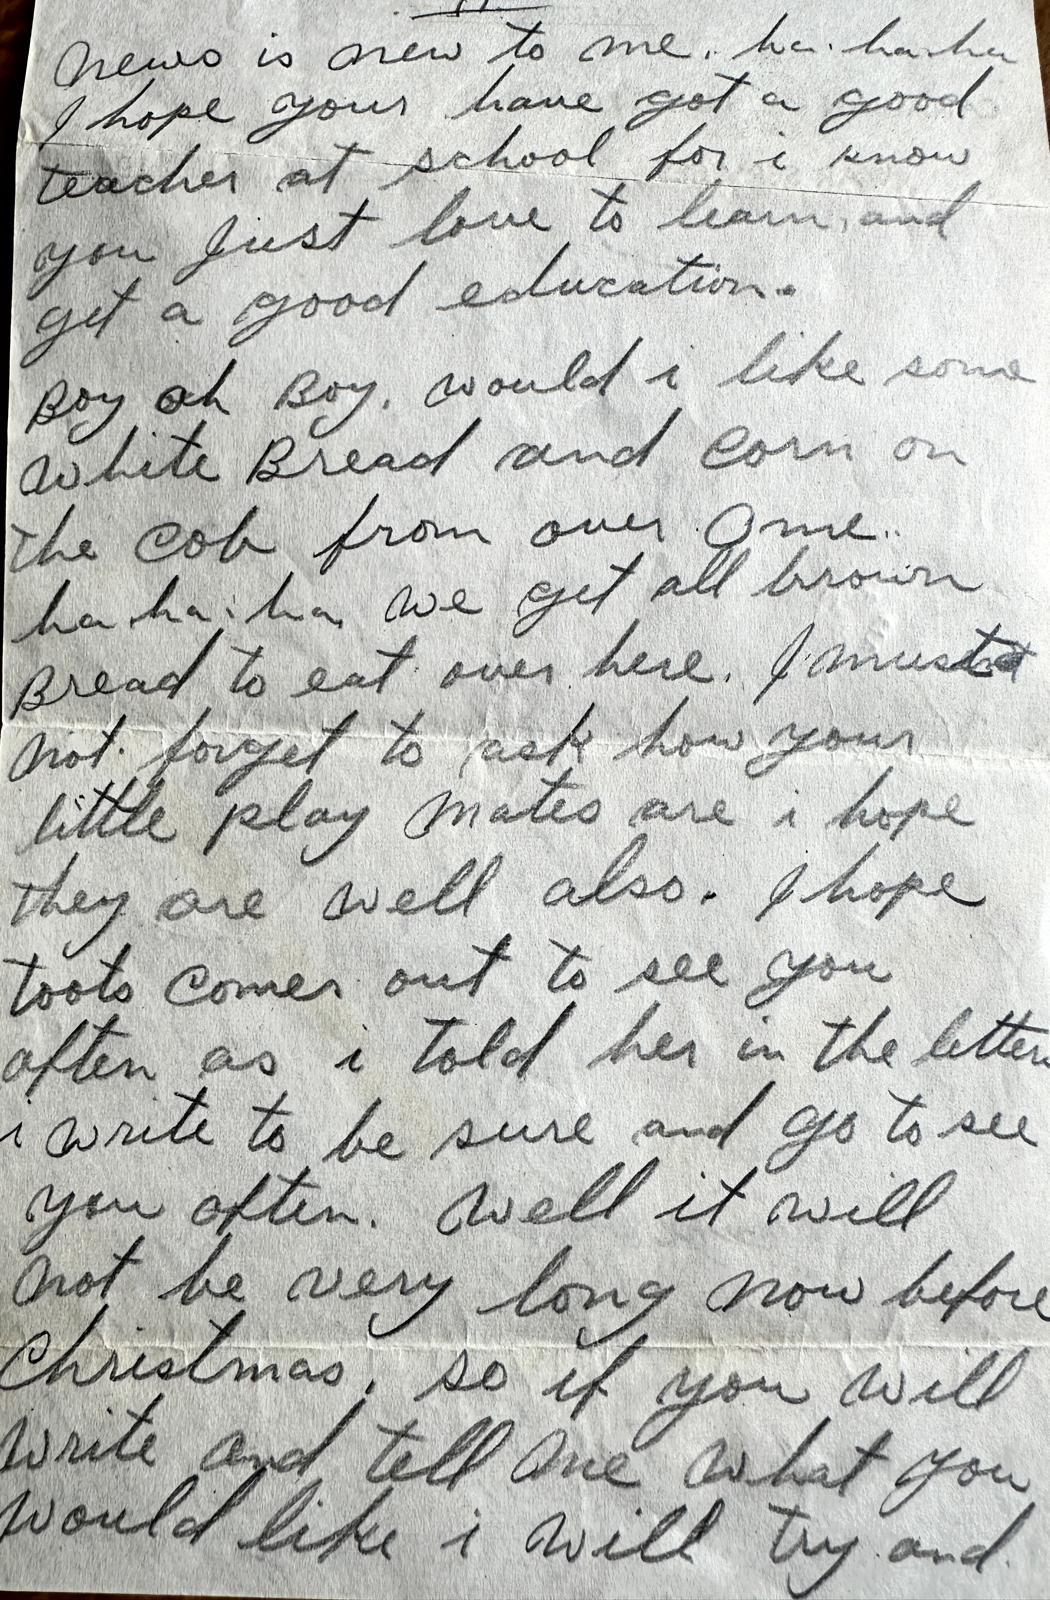 news is new to me. ha. ha. ha
I hope your have got a good
teacher at school for i know
you Just love to learn, and
get a good education.
Boy oh Boy. would i like some
white Bread and Corn on
the Cob from over  me..
ha ha. ha. we get all brown
Bread to eat over here. I must
not. forget to ask how your
little play mates are i hope
they are well also. I hope
toots comes out to see you
often as i told her in the letter
i write to be sure and go to see
you often. Well it will
not be very long now before
Christmas. so if you will
write and tell me what you
would like i will try and.